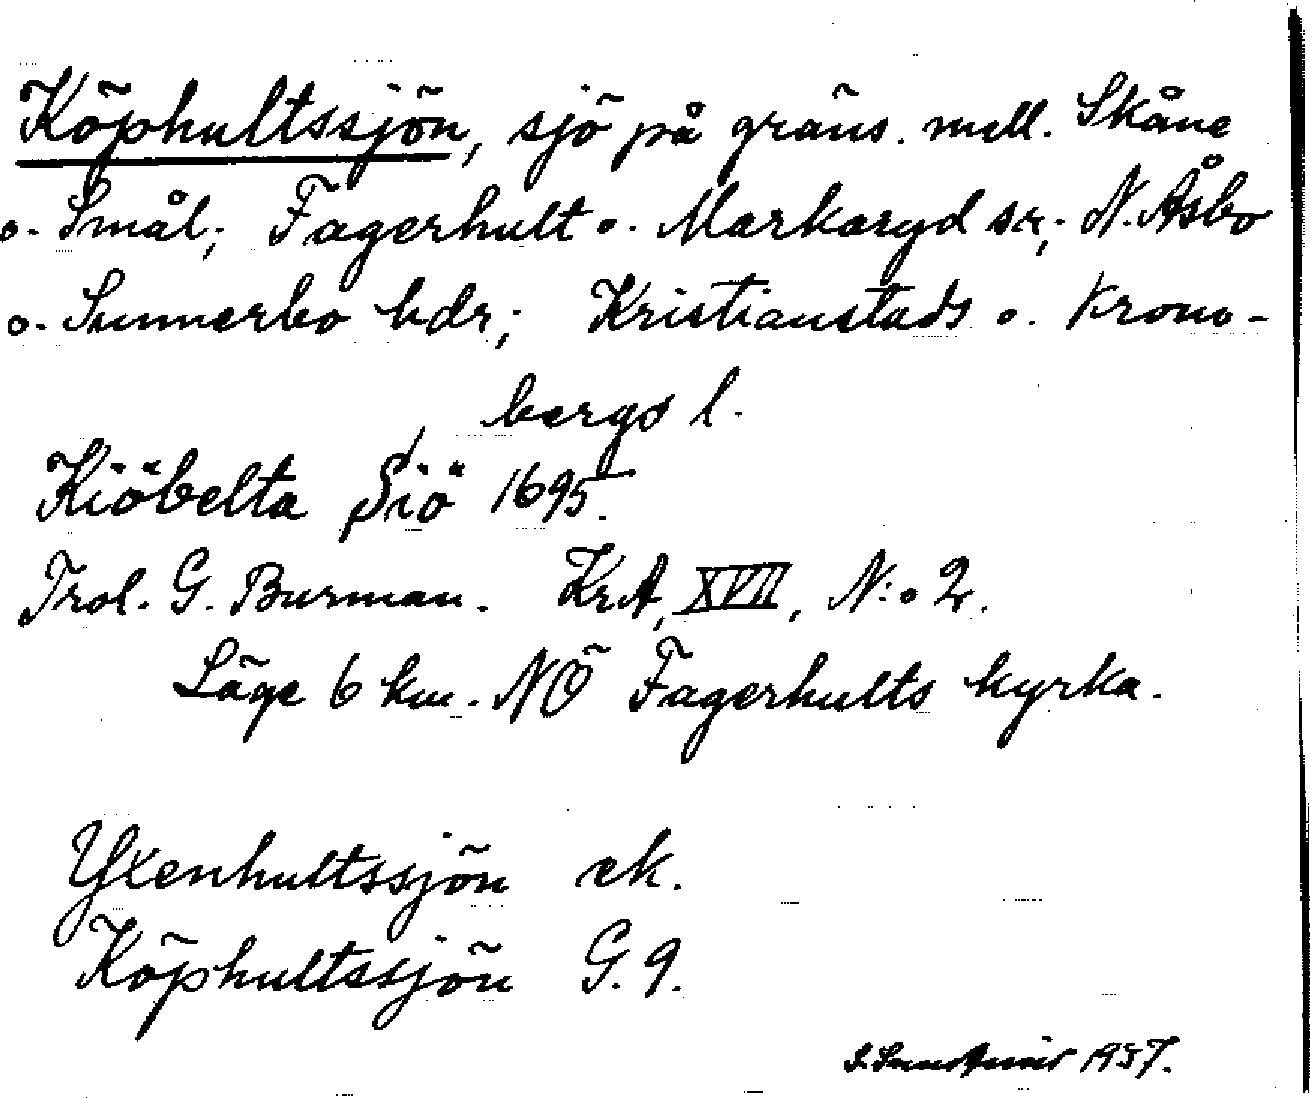 Köphultssjön, sjö på gräns. mell. Skåne
o. Smål; Fagerhult o. Markaryd sr; N. Åsbo
o. Sunnerbo hdr; Kristianstads o. Krono-
bergs l.
Kiöbelta Siö 1695.
Trol. G. Burman. KrA, XVII, N:o 2.
Läge 6 km. NÖ Fagerhults kyrka.
Yxenhultssjön ek.
Köphultssjön G. 9.
1937.